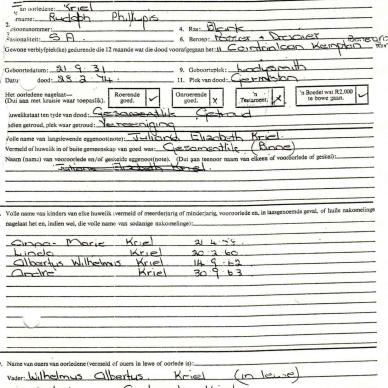 an oorledene: Kriel
rname: Rudolph Phillupis
2. rsoonnommer: 4. Ras: Blank
3. Nasionaliteit: S A. 6. Beroep:
Gewone verblyfplek(ke) gedurende die 12 maande wat die dood voorafgegaan het: 11
Geboortedatum: 21 9. 31 9. Geboorteplek: Ladysmith
Datum dood: 28 2. 74. 11. Plek van dood: Germiston
Het oorledene nagelaat—
(Dui aan met kruise waar toepaslik).
Roerende goed.
Onroerende goed. X
'n Testament. X
'n Boedel wat R2,000 te bowe gaan.
uwelikstaat ten tyde van dood: Gesamentlik Getroud
ndien getroud, plek waar getroud: Vereeniging
Volle name van langslewende eggenoot(note): Juliana Elizabeth Kriel
Vermeld of huwelik in of buite gemeenskap van goed was: Gesamentlik (Binne)
Naam (name) van vooroorlede en/of geskeide eggenoot(note). (Dui aan teenoor naam van elkeen of vooroorlede of geskei):
Juliana Elizabeth Kriel
Volle name van kinders van elke huwelik (vermeld of meerderjarig of minderjarig, vooroorlede en, in laasgenoemde geval, of hulle nakomelinge
nagelaat het en, indien wel, die volle name van sodanige nakomelinge):
Anna- Marie Kriel 21 4
Linda Kriel 30 2 60
Albertus Wilhelmus Kriel 14 9 62
Andre Kriel 30 9 63
Name van ouers van oorledene (vermeld of ouers in lewe of oorlede is):
Vader: Wilhelmus Albertus Kriel (in lewe)